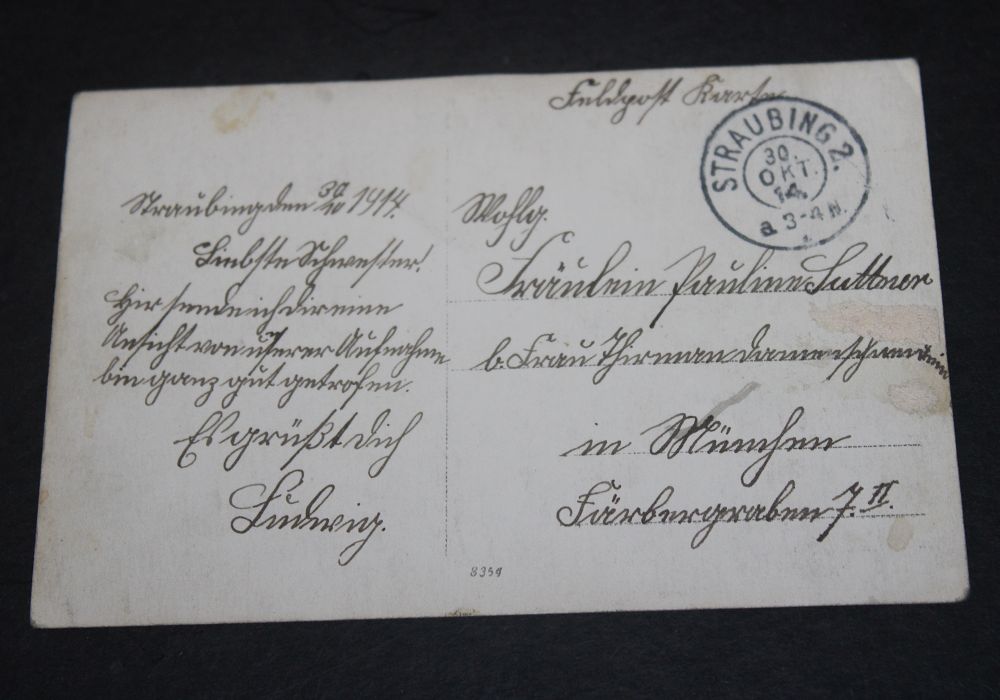 Feldpost Karte
STRAUBING 2.
30.
OKT.
14.
a 3-4 N.
Straubing den 30/10 1914.
Liebste Schwester!
Hir sende ich dir eine
Ansicht von unserer Aufnahme
bin ganz gut getrofen.
Es grüßt dich
Ludwig.
Wohlg.
Fräulein Pauline Suttner
b. Frau Thirman
in München
Färbergraben 7. II.
8354